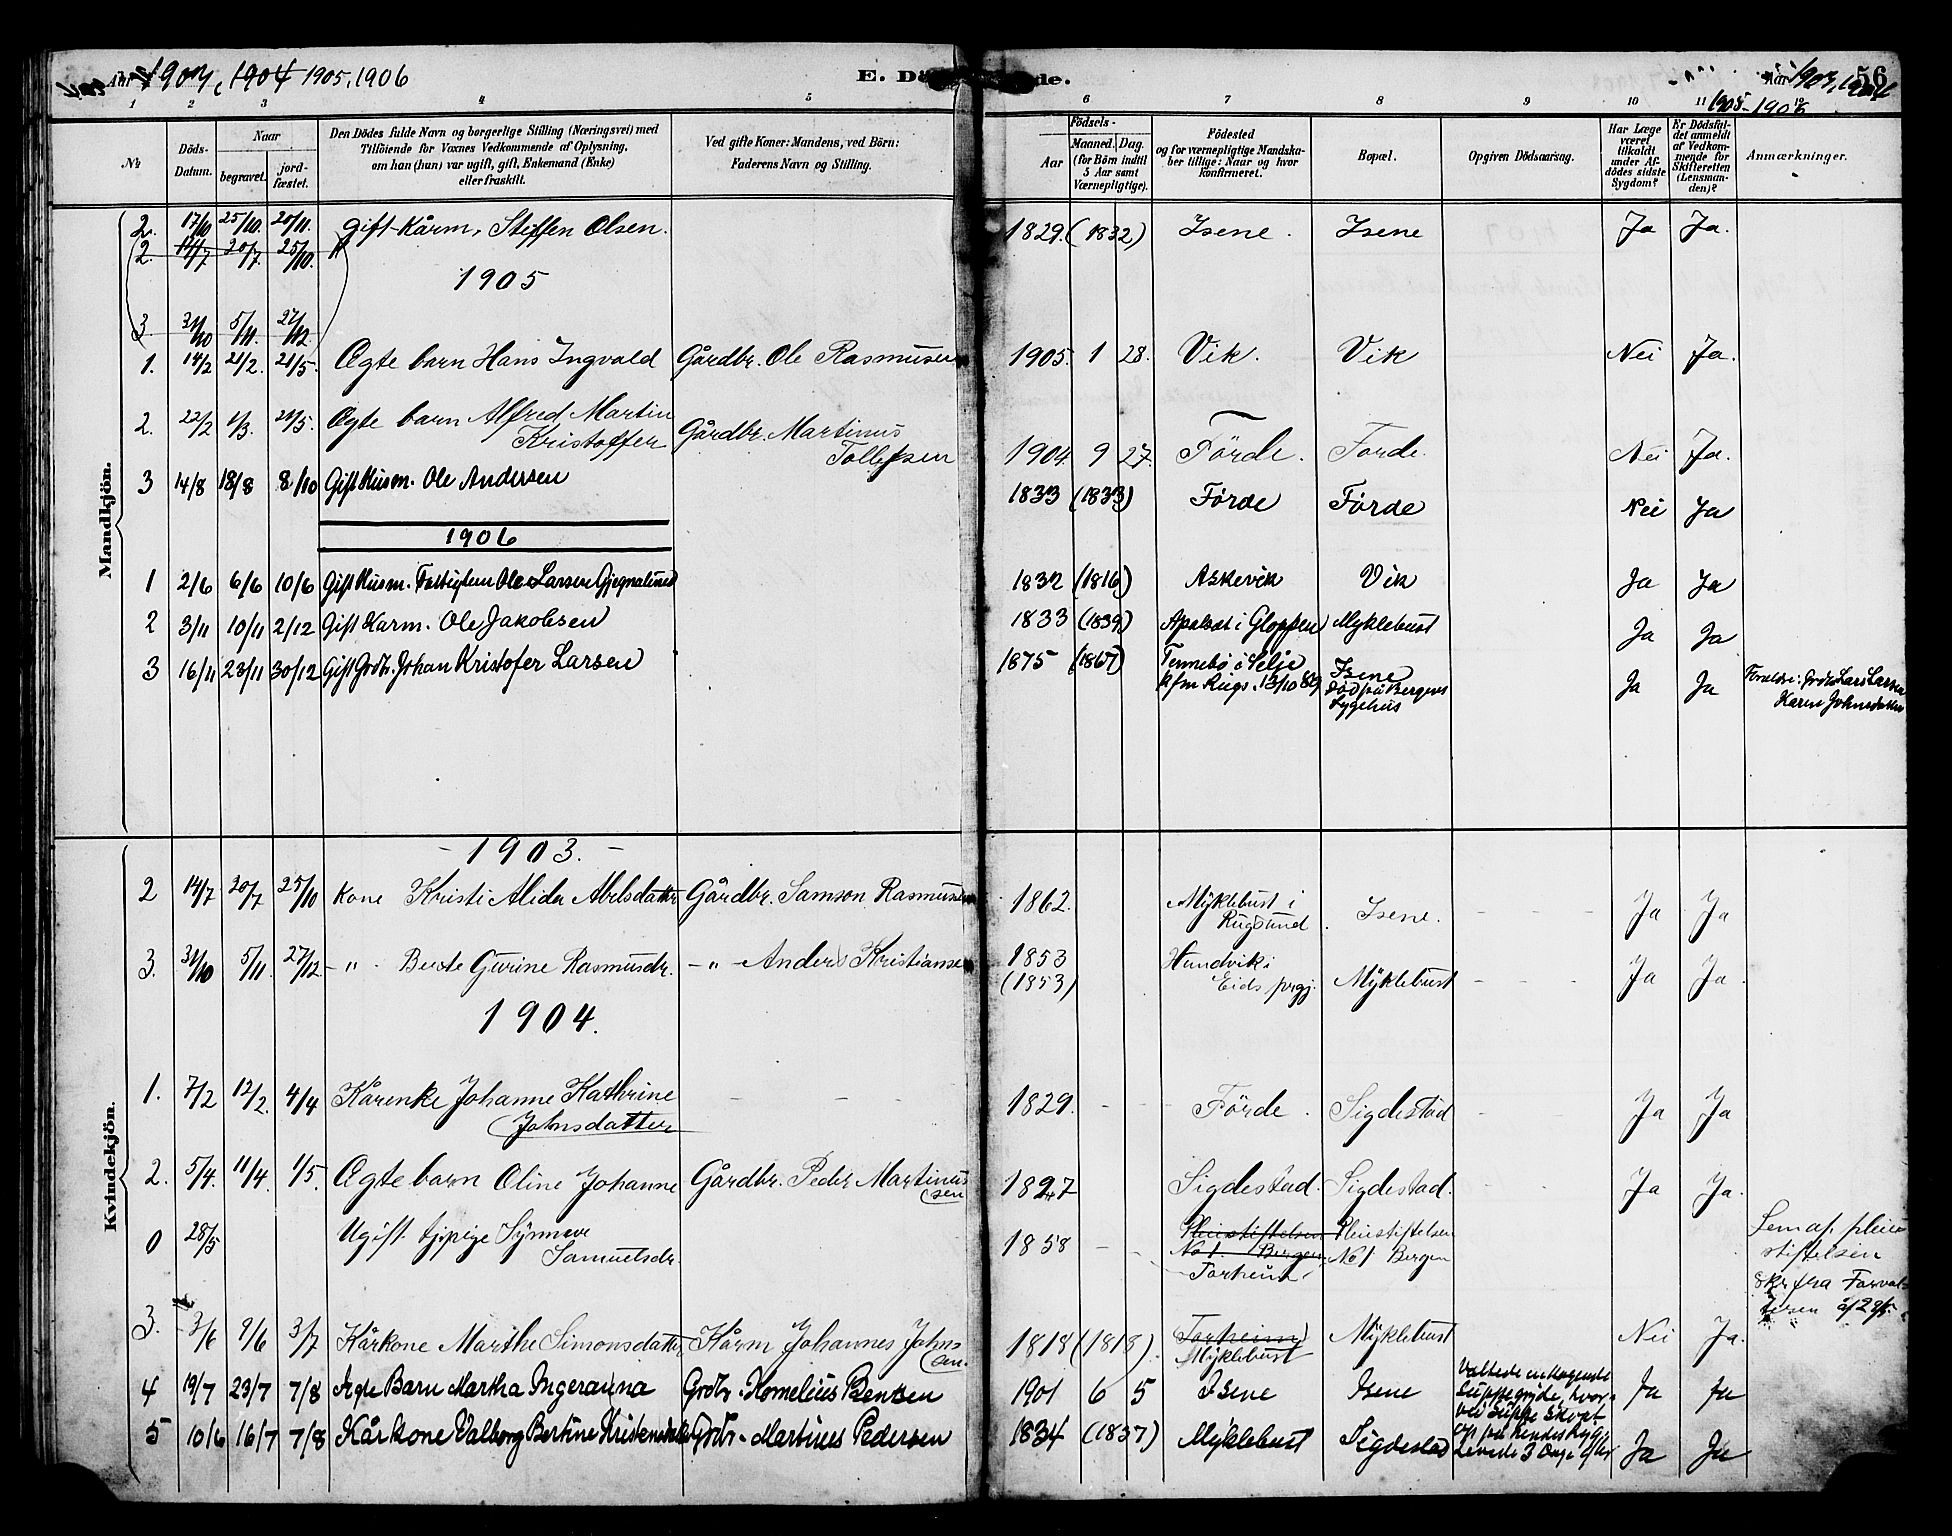 Aar 1903, 1904 1905, 1906
E. Dö de.
Aar 1903, 1904 56
1905-1906
1 2 3 4 5 6 7 8 9 10 11 12
No. Döds-Datum. Naar begravet. jord-fæstet. Den Dödes fulde Navn og borgerlige Stilling (Næringsvei) med Tilföiende for Voxnes Vedkommende af Oplysning, om han (hun) var ugift, gift, Enkemand (Enke) eller fraskilt. Ved gifte Koner: Mandens, ved Börn: Faderens Navn og Stilling. Födsels- Aar Maaned. Dag. (for Börn indtil 5 Aar samt Værnepligtige). Födested og for værnepligtige Mandskaber tillige: Naar og hvor konfirmeret. Bopæl. Opgiven Dödsaarsag. Har Læge været tilkaldt under Afdödes sidste Sygdom? Er Dödsfaldet anmeldt af Vedkommende for Skifteretten (Lensmanden)? Anmærkninger.
Mandkjön.
2. 17/10 25/10. 20/11. gift Kårm, Steffen Olsen. 1829. (1832) Isene. Isene Ja Ja.
2. 14/7 20/7. 25/10.
1905
3. 31/10 5/11. 27/12.
1. 14/2 21/2. 21/5. Ægte barn Hans Ingvald Gårdbr. Ole Rasmusen 1905. 1 28. Vik. Vik Nei Ja.
2. 22/2 1/3. 21/5. Ægte barn Alfred Martin Gårdbr. Martinus
Kristoffer Tollefsen 1904. 9 27. Förde. Forde. Nei Ja.
3 14/8 18/8 8/10 Gift Husm. Ole Andersen 1833 (1833) Förde Förde Nei Ja
1906
1 2/6 6/6 10/6 Gift Husm. Fattiglem Ole Larsen Gjegnalund 1832 (1816) Askevik Vik Ja Ja
2 3/11 10/11 2/12 Gift Karm. Ole Jakobsen 1833 (1839) Apalset i Gloppen Myklebust Ja Ja
3 16/11 23/11 30/12 Gift Grdbr. Johan Kristofer Larsen 1875 (1867) Tennebø i Selje Isene Ja Ja Forældre: Grdbr. Lars Larsen
kfm Rugs. 13/10 89 død på Bergens Karen Johnsdatter
Sygehus
Kvindekjön.
- 1903. -
2 14/7 20/7 25/10 Kone Kristi Alida Abelsdatter Gårdbr. Samson Rasmusen 1862. Myklebust i
Rugsund. Isene. - - - Ja Ja
3. 31/10 5/11. 27/12 - " - Berte Gurine Rasmusdr. - " - Anders Kristiansen 1853
(1853) Hundvik i
Eids prgj. Myklebust - - - Ja Ja.
1904.
1. 7/2 12/2. 4/4 Kårenke Johanne Kathrine
Johnsdatter - - - 1829. - - Förde. Sigdestad - - Ja Ja
2. 5/4. 11/4. 1/5. Ægte barn Oline Johanne Gårdbr. Peder Martinus
sen 1897 Sigdestad. Sigdestad. Ja Ja.
0 28/5 Ugift tjpige Synneve
Samuelsdr. 1858 - - Pleiestiftelsen Pleiestiftelsen
No 1. Bergen. No 1 Bergen
Torheim
Lem af pleie
stiftelsen
skr. fra Forval-
3. 3/6 9/6 3/7 Kårkone Marthe Simonsdatter Kårm Johannes Johns
sen. 1818 (1818). Torheim Myklebust Nei Ja.
Myklebust
4 19/7 23/7 7/8 Ægte Barn Martha Ingeranna Grdbr. Kornelius Bentsen 1901 6 5 Isene Isene Væltede en kogende Ja Ja
suppegryde, hvor-
ved suppe skvat
5 10/6 16/7 7/8 Kårkone Valborg Bertine Kristensdatter Grdbr. Martinus Pedersen 1834 (1837) Myklebust Sigdestad op på hendes ryg. Ja Ja
Levede 3 Dage efter